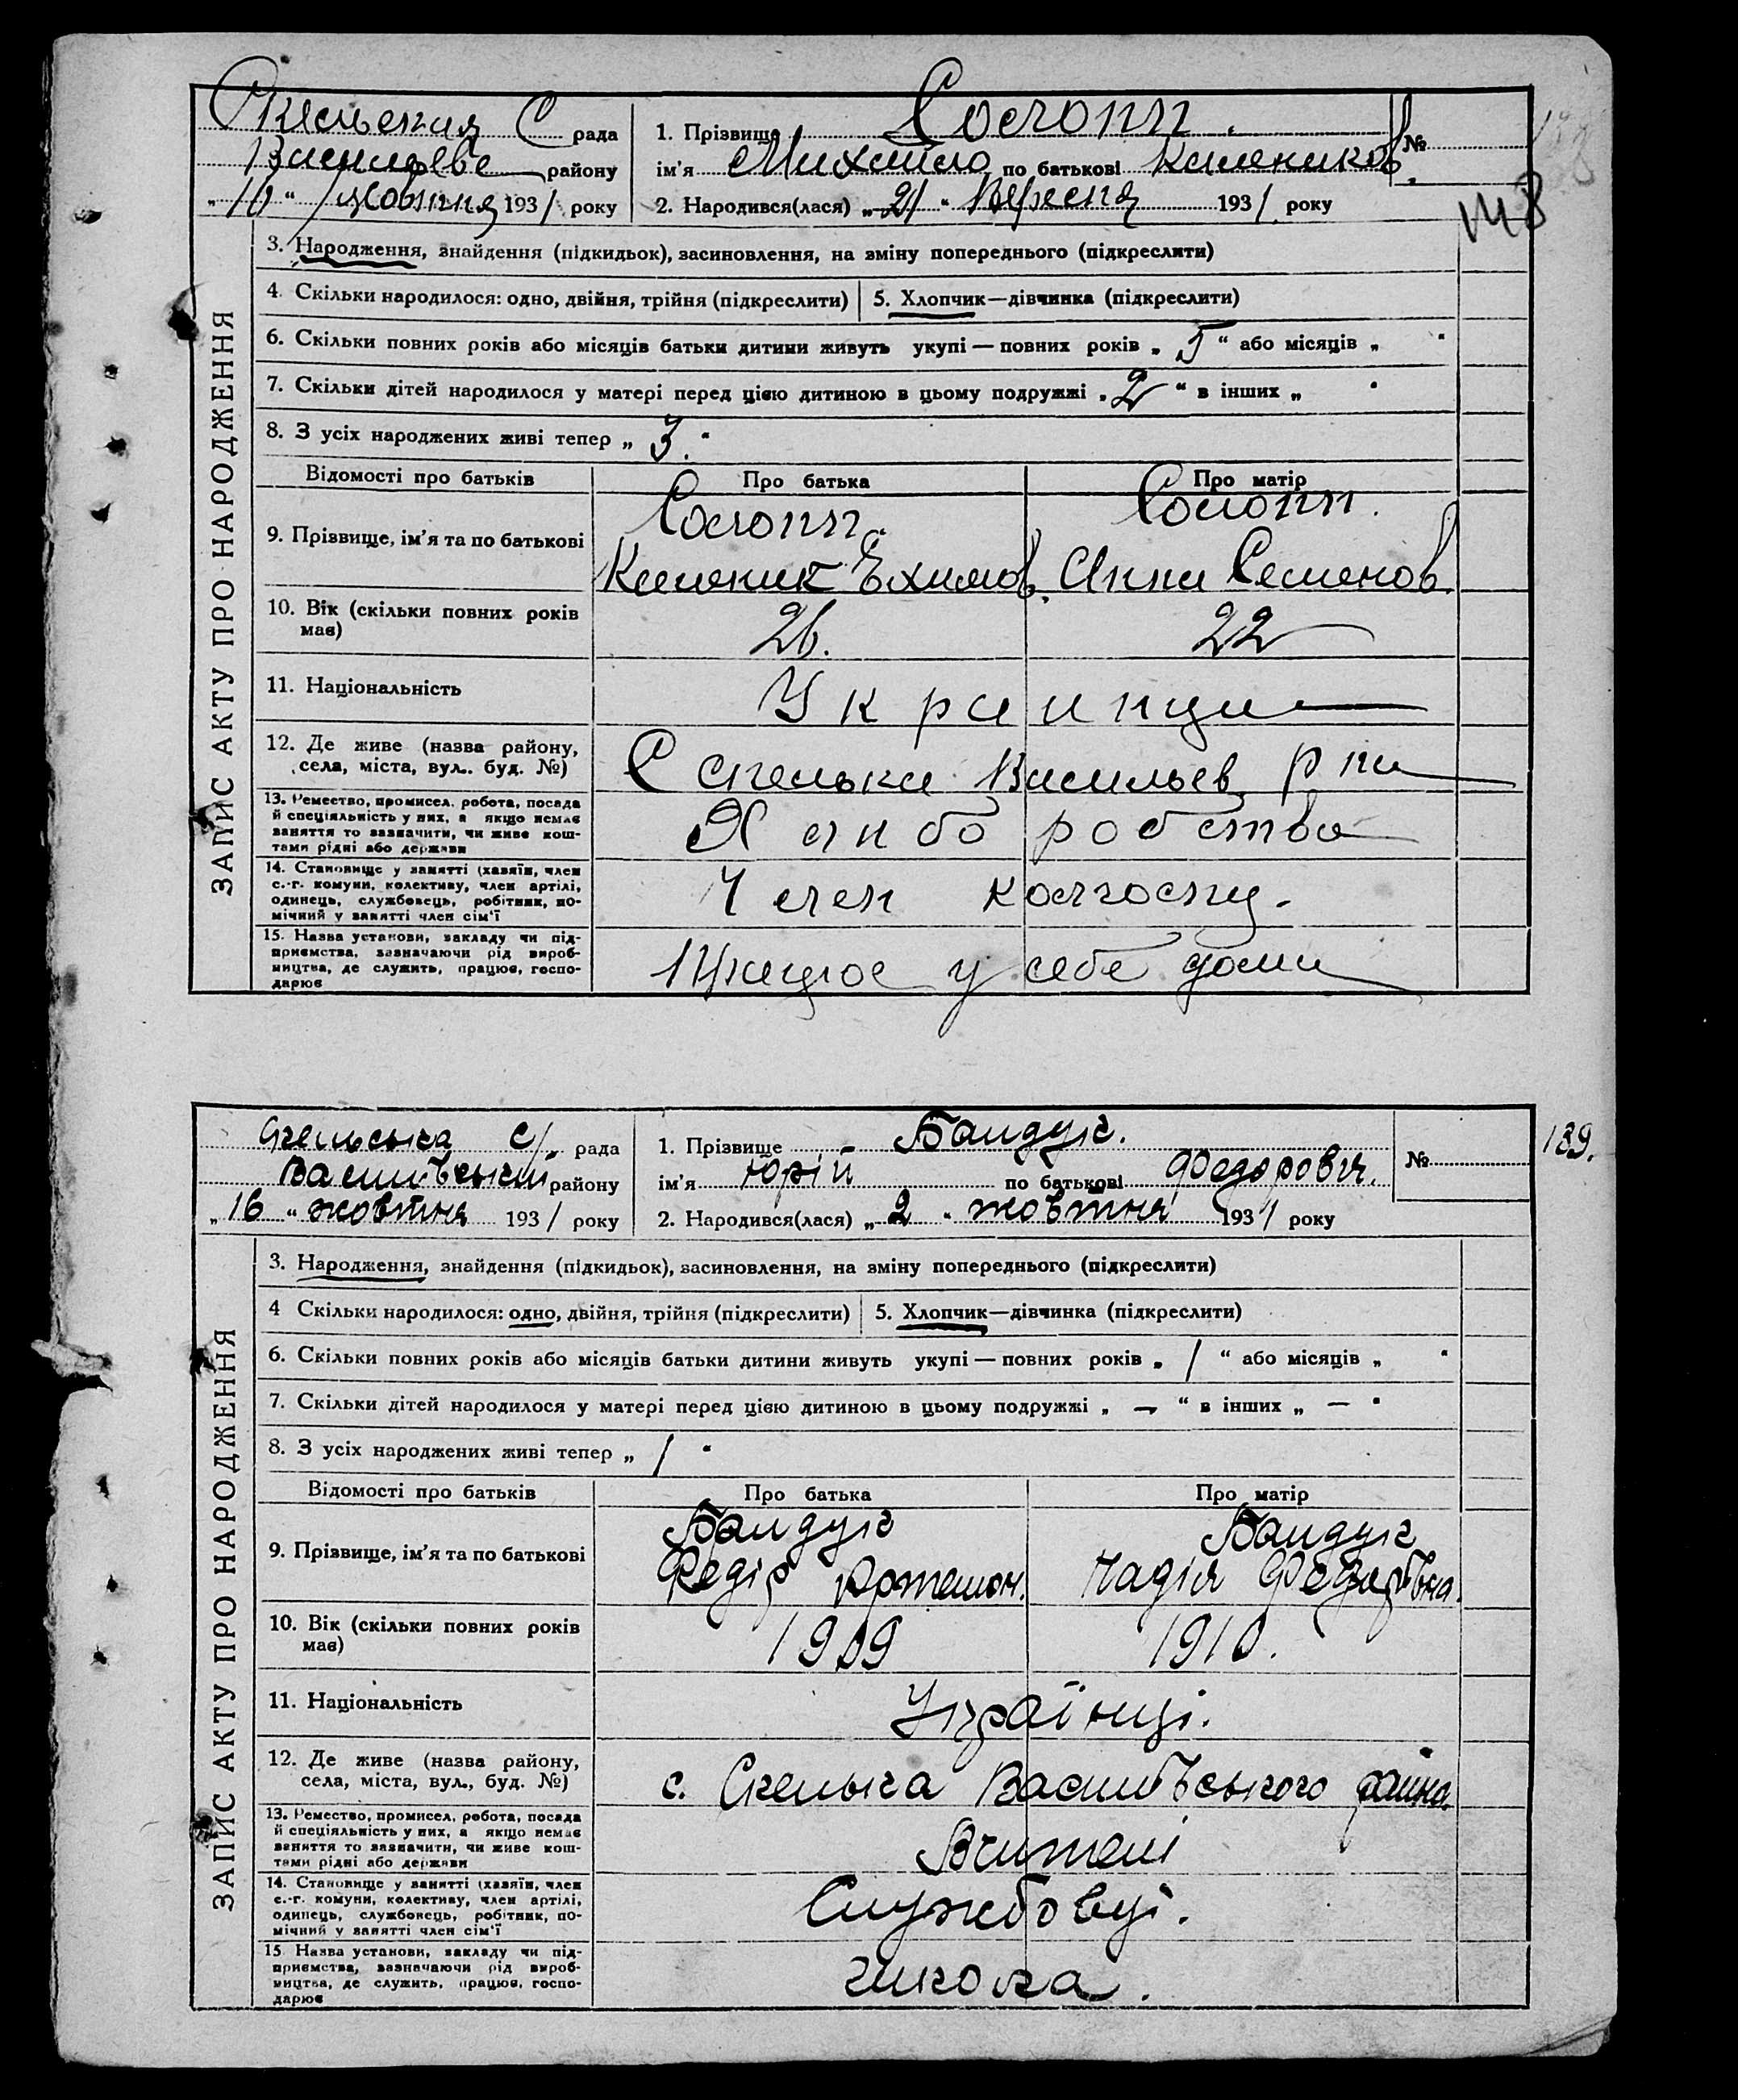 Скельская С рада
Васильевс району
„ 10 “ Жовтня 1931 року
1. Прізвище Солопп.
ім'я Михайло по батькові Калеников.
2. Народився(лася) „ 21 “ Вересня 1931 року
№
138
ЗАПИС АКТУ ПРО НАРОДЖЕННЯ
3. Народження, знайдення (підкидьок), засиновлення, на зміну попереднього (підкреслити)
4. Скільки народилося: одно, двійня, трійня (підкреслити)
5. Хлопчик—дівчинка (підкреслити)
6. Скільки повних років або місяців батьки дитини живуть укупі — повних років „ 5 “ або місяців „ “
7. Скільки дітей народилося у матері перед цією дитиною в цьому подружжі „ 2 “ в інших „ “
8. З усіх народжених живі тепер „ 3. “
Відомості про батьків Про батька Про матір
9. Прізвище, ім'я та по батькові
Солопп. Солопп.
Каленик Ехимов. Анна Семенов.
10. Вік (скільки повних років має)
26. 22
11. Національність
Украинци
12. Де живе (назва району, села, міста, вул.. буд. №)
С Скельки Васильев р на
13. Ремество, промисел, робота, посада й спеціяльність у них, а якщо немає заняття то зазначити, чи живе коштами рідні або держави
Хлибо робство
14. Становище у занятті (хазяїн, член с.-г. комуни, колективу, член артілі, одинець, службовець, робітник, помічний у занятті член сім'ї
Член колгоспу.
15. Назва установи, закладу чи підприємства, зазначаючи рід виробництва, де служить, працює, господарює
у себе дома
Скельська с/ рада
Василівський району
„ 16 “ жовтня 1931 року
1. Прізвище Бандук.
ім'я Юрій по батькові Федорович.
2. Народився(лася) „ 2 “ жовтня 1931 року
№
139.
ЗАПИС АКТУ ПРО НАРОДЖЕННЯ
3. Народження, знайдення (підкидьок), засиновлення, на зміну попереднього (підкреслити)
4 Скільки народилося: одно, двійня, трійня (підкреслити)
5. Хлопчик—дівчинка (підкреслити)
6. Скільки повних років або місяців батьки дитини живуть укупі — повних років „ 1 “ або місяців „ “
7. Скільки дітей народилося у матері перед цією дитиною в цьому подружжі „ — “ в інших „ — “
8. З усіх народжених живі тепер „ 1 “
Відомості про батьків Про батька Про матір
9. Прізвище, ім'я та по батькові
Бандук Бандук
Федір Артемон. Надія Федорівна.
10. Вік (скільки повних років має)
1909 1910.
11. Національність
Українці.
12. Де живе (назва району, села, міста, вул., буд. №)
с. Скелька Василівського району.
13. Ремество, промисел, робота, посада й спеціяльність у них, а якщо немає заняття то зазначити, чи живе коштами рідні або держави
Вчителі
14. Становище у занятті (хазяїн, член с.-г. комуни, колективу, член артілі, одинець, службовець, робітник, помічний у занятті член сім'ї
Службовці.
15 Назва установи, закладу чи підприємства, зазначаючи рід виробництва, де служить, працює, господарює
школа.